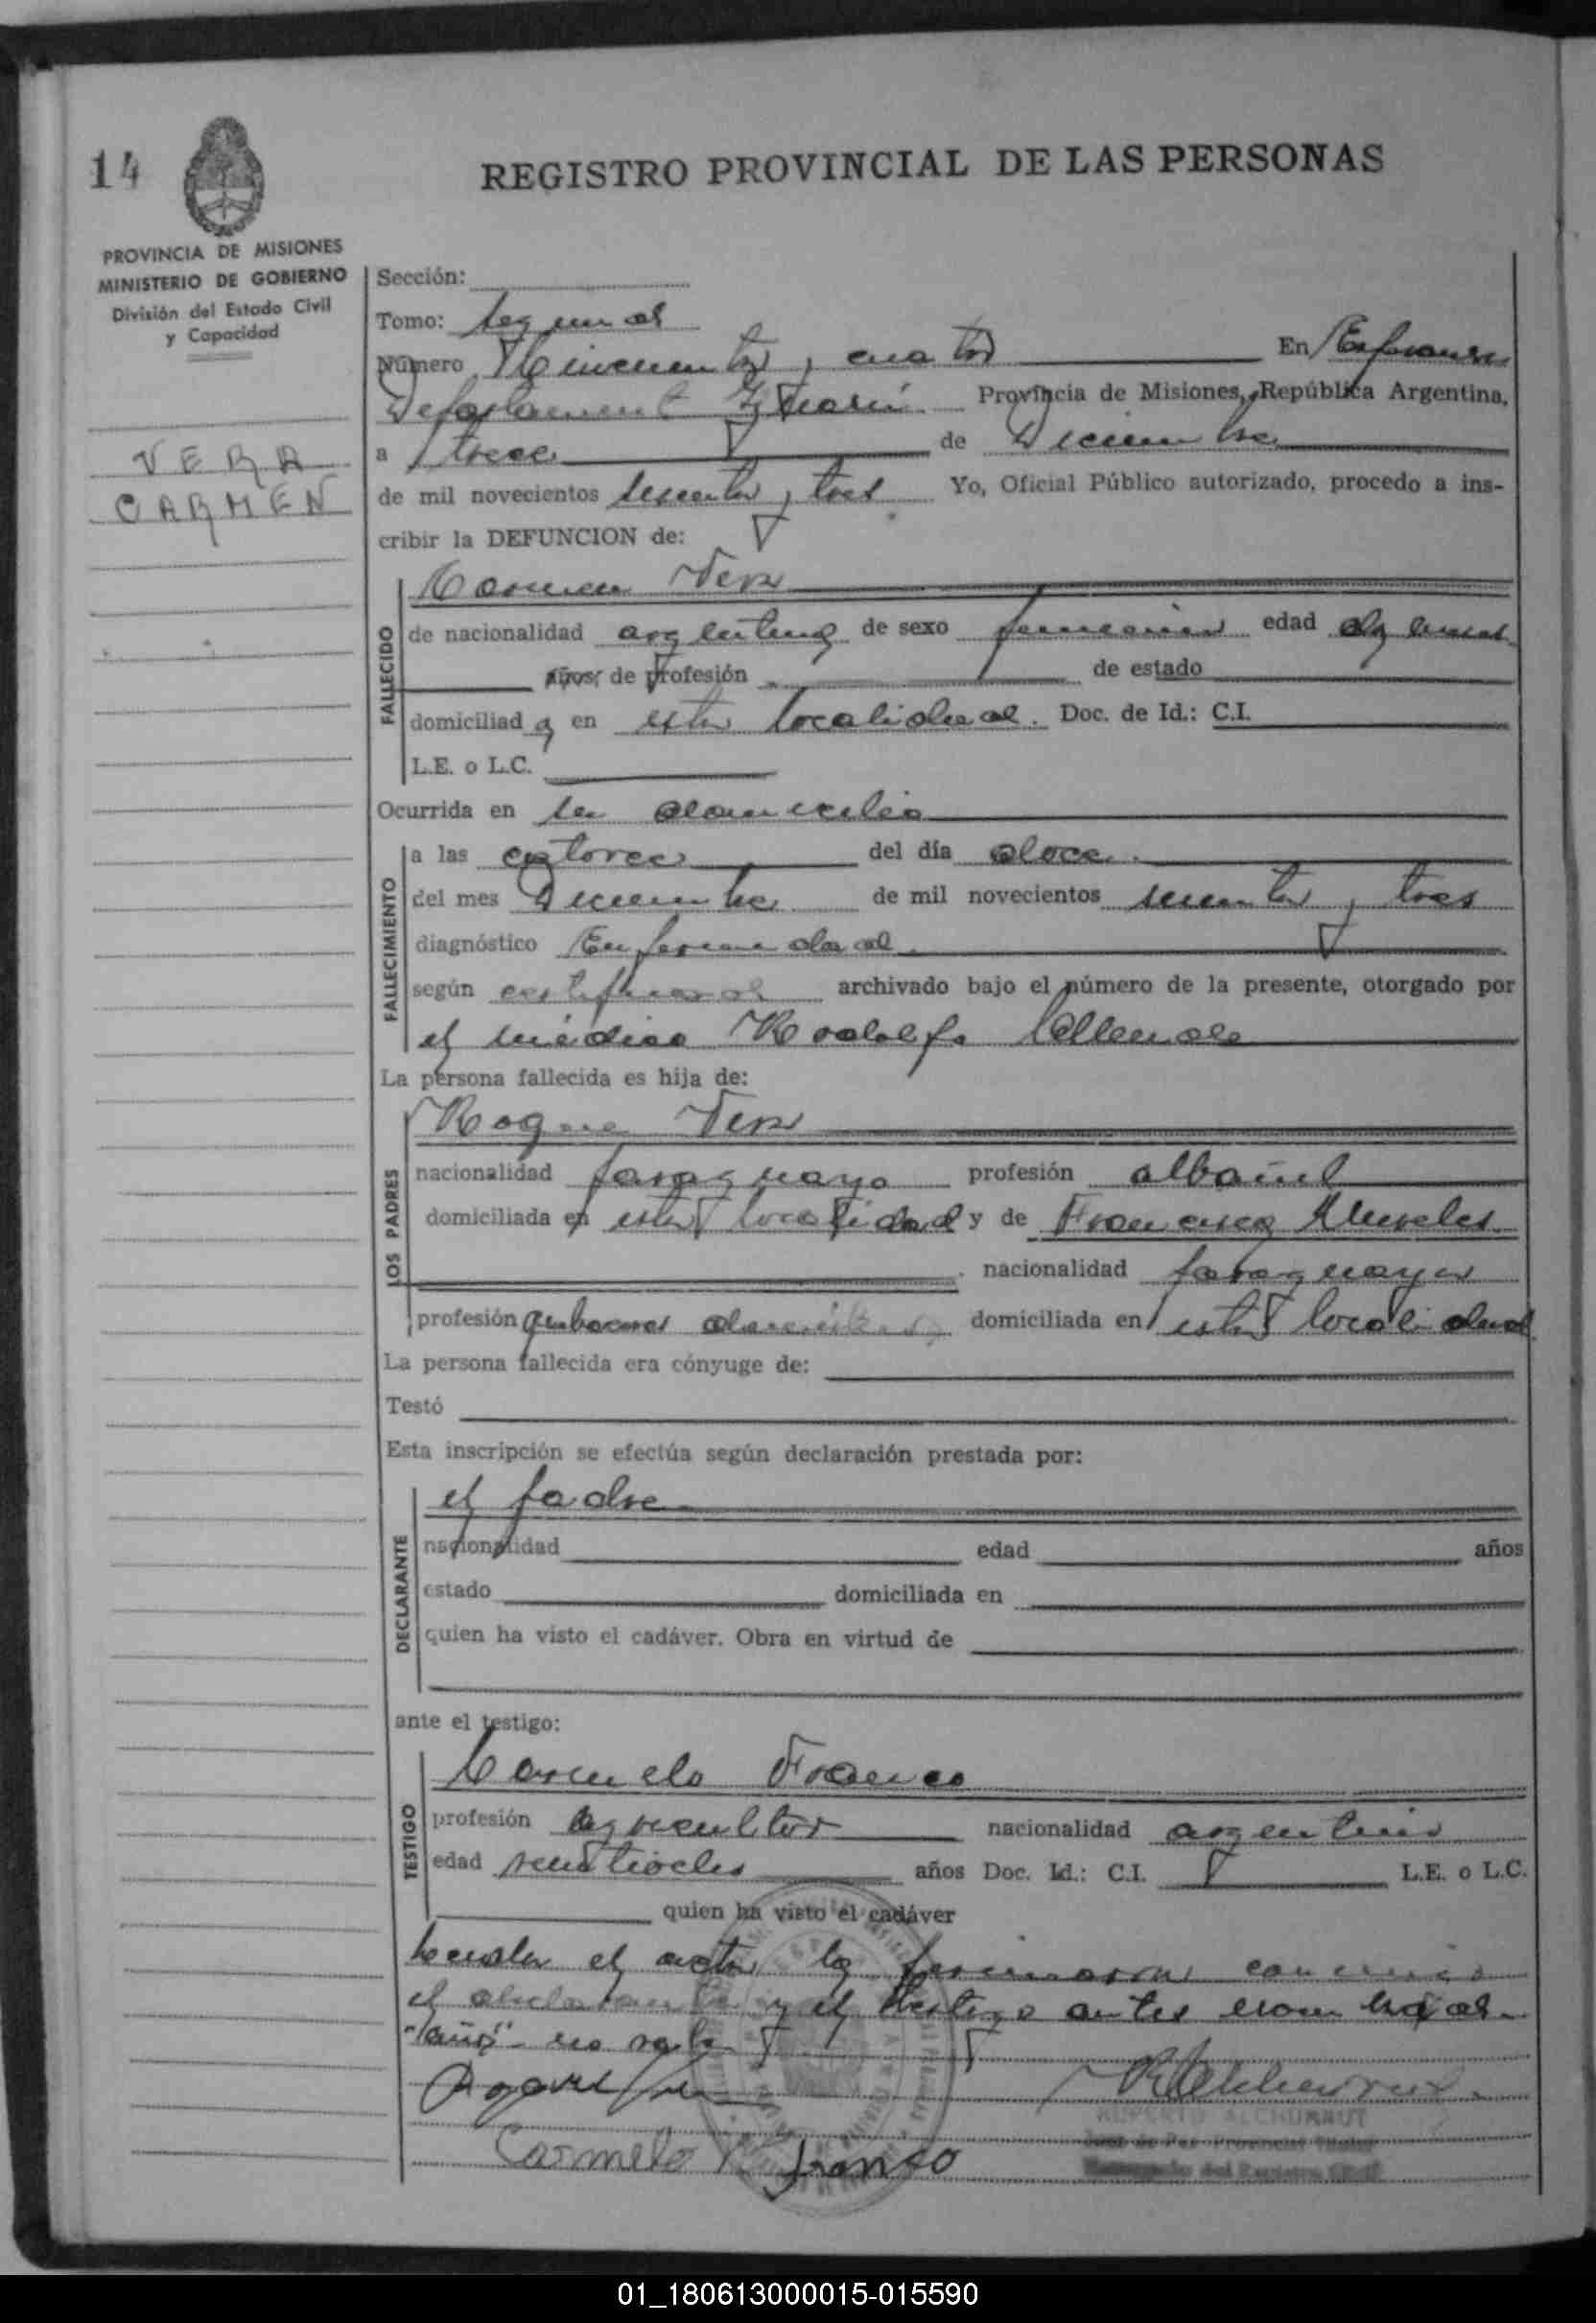 14
REGISTRO PROVINCIAL DE LAS PERSONAS
PROVINCIA DE MISIONES
MINISTERIO DE GOBIERNO
División del Estado Civil
y Capacidad
VERA
CARMEN
Sección:
Tomo: segundo
Número Cincuenta y cuatro En Esperanza
Departamento Iguazú Provincia de Misiones, República Argentina,
a trece de Diciembre
de mil novecientos sesenta y tres Yo, Oficial Público autorizado, procedo a ins-
cribir la DEFUNCION de:
FALLECIDO
Carmen Vera
de nacionalidad argentina de sexo femenino edad meses
años, de profesión de estado
domiciliad a en esta localidad. Doc. de Id.: C.I.
L.E. o L.C.
Ocurrida en su domicilio
FALLECIMIENTO
a las catorce del día doce
del mes Diciembre de mil novecientos sesenta y tres
diagnóstico Enfermedad
según certificado archivado bajo el número de la presente, otorgado por
el médico Rodolfo
La persona fallecida es hija de:
LOS PADRES
Roque Vera
nacionalidad paraguayo profesión albañil
domiciliada en esta localidad y de Francisca
nacionalidad paraguaya
profesión quehaceres domésticos domiciliada en esta localidad
La persona fallecida era cónyuge de:
Testó
Esta inscripción se efectúa según declaración prestada por:
DECLARANTE
el padre
nacionalidad edad años
estado domiciliada en
quien ha visto el cadáver. Obra en virtud de
ante el testigo:
TESTIGO
Carmelo Franco
profesión agricultor nacionalidad argentino
edad veintiocho años Doc. Id.: C.I. L.E. o L.C.
quien ha visto el cadáver
el acta la firmaron conmigo
el declarante y el testigo antes nombrado.
"años" no vale
Roque Vera
Carmelo Franco
RUPERTO ALCHURRUT
Juez de Paz Provincial Titular
Encargado del Registro Civil
01_180613000015-015590